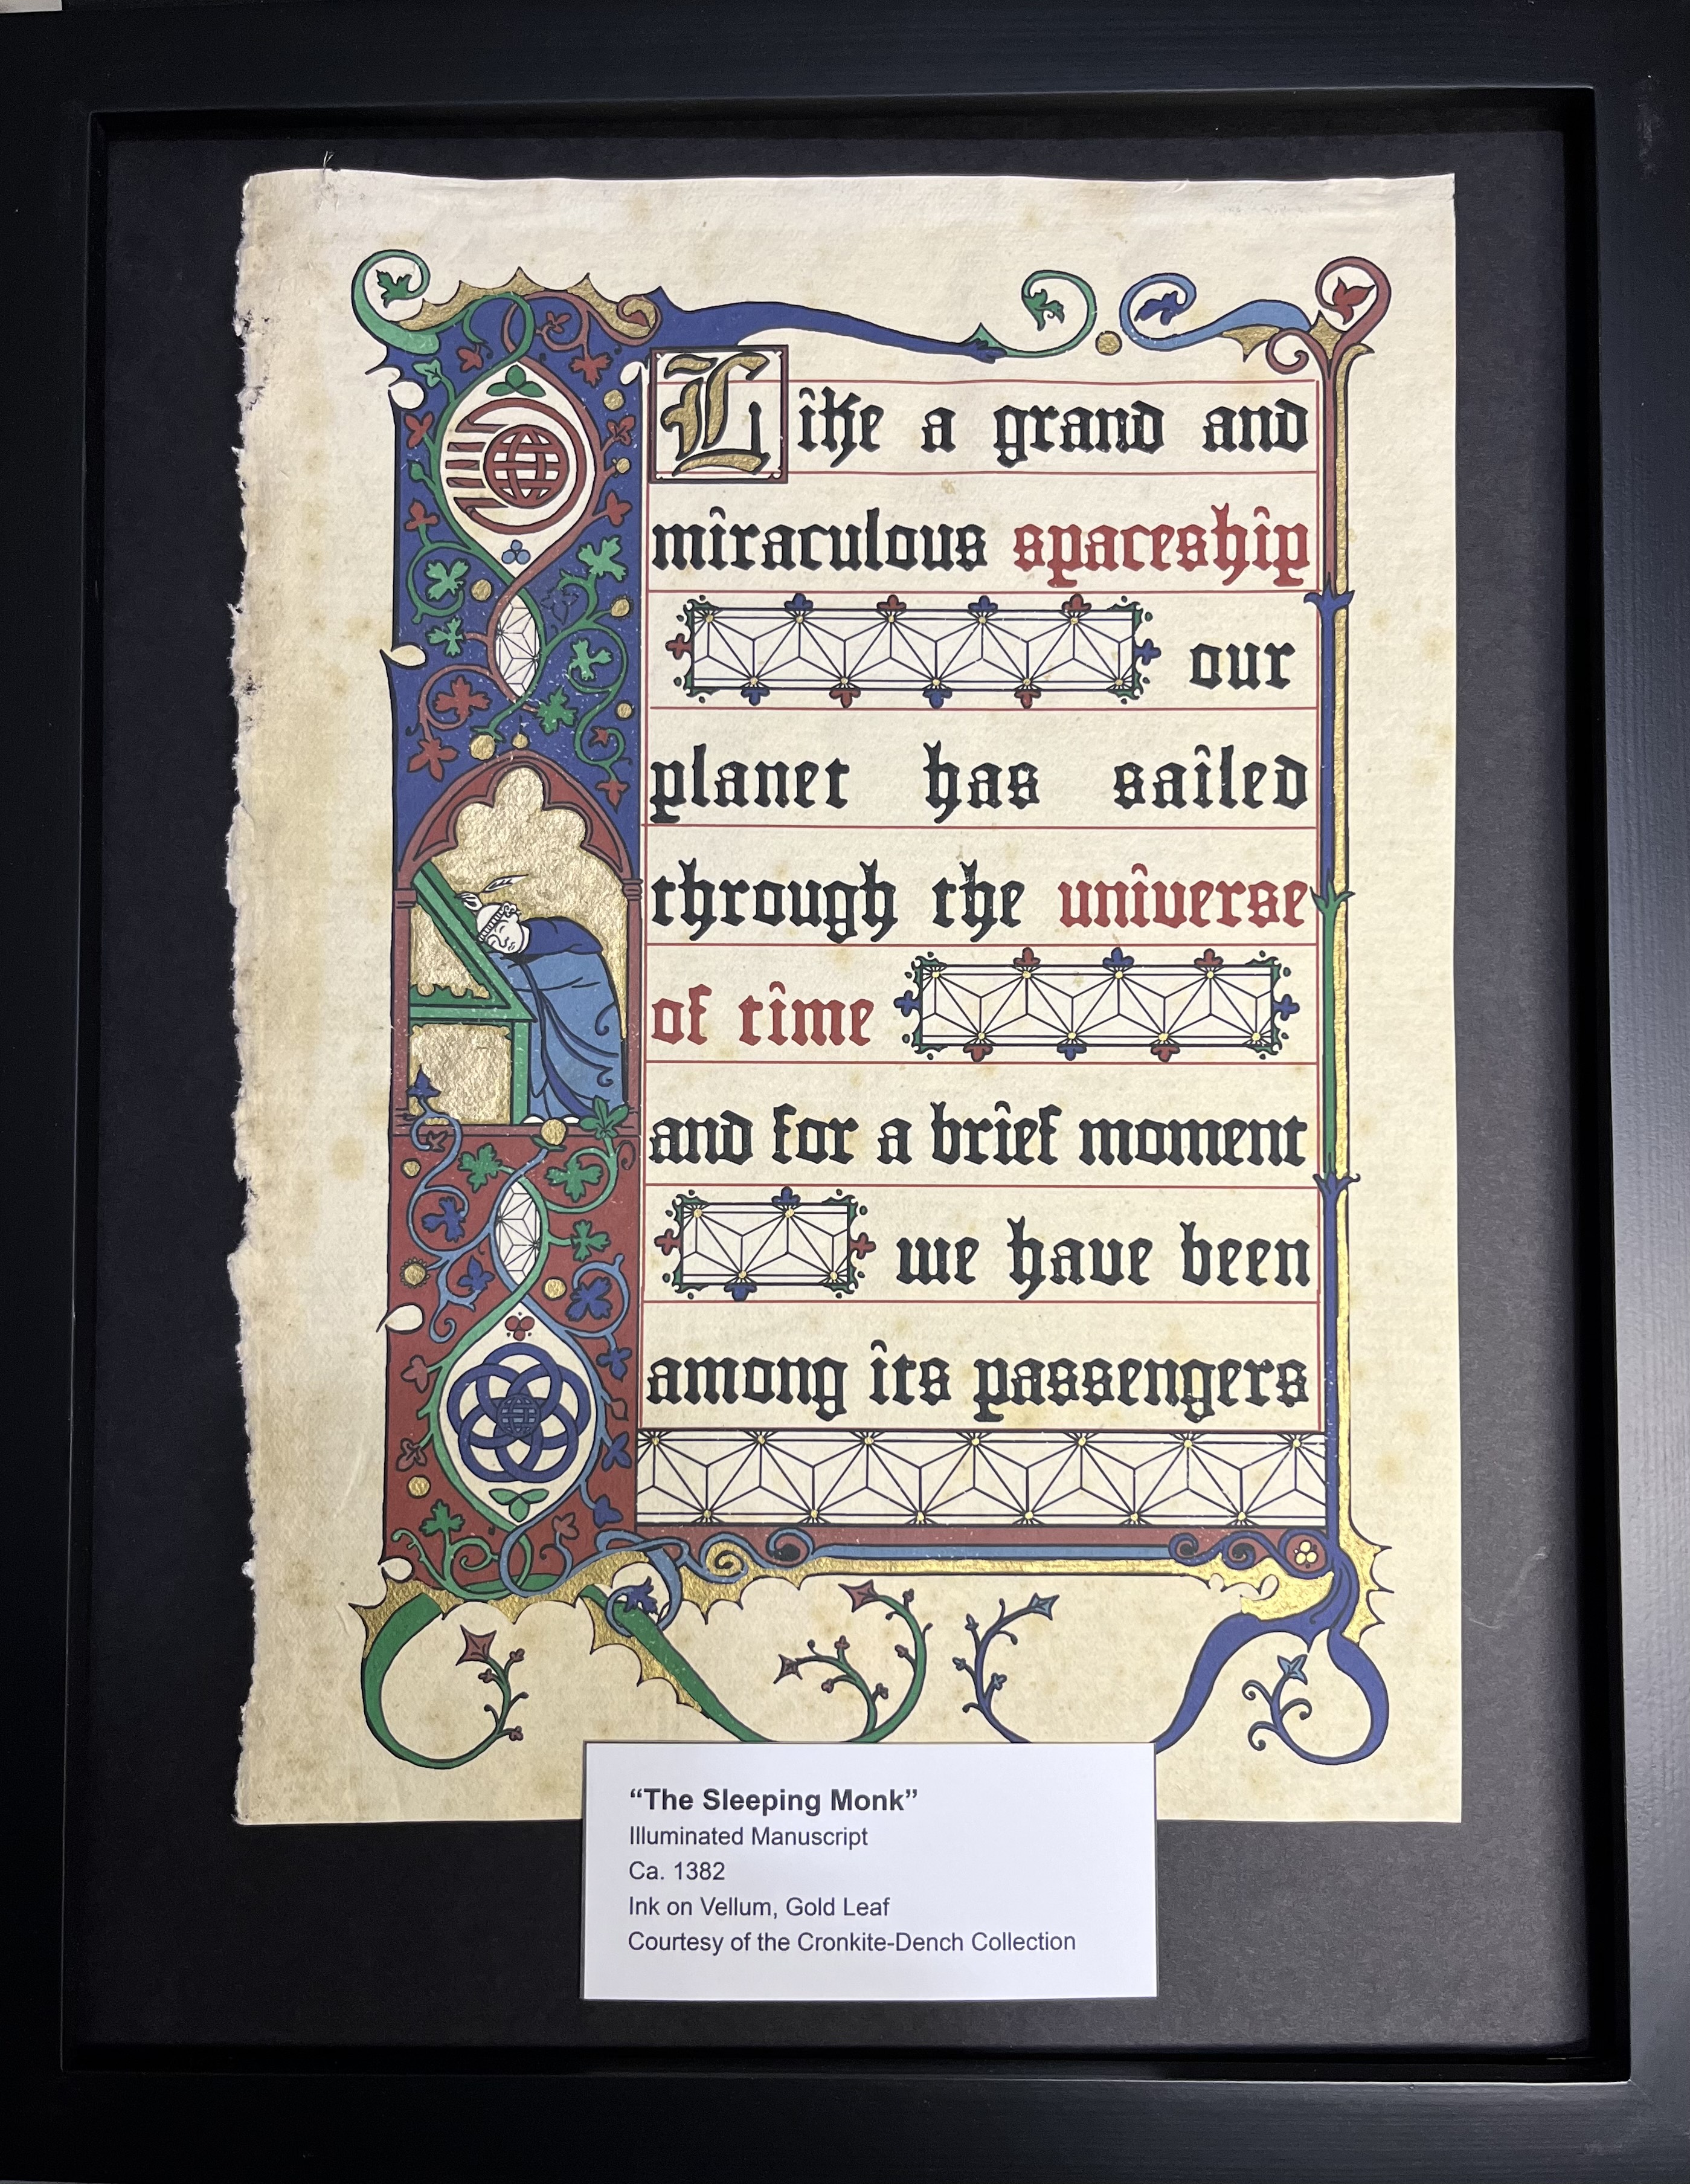 Like a grand and
miraculous spaceship
our
planet has sailed
through the universe
of time
and for a brief moment
we have been
among its passengers
“The Sleeping Monk”
Illuminated Manuscript
Ca. 1382
Ink on Vellum, Gold Leaf
Courtesy of the Cronkite-Dench Collection